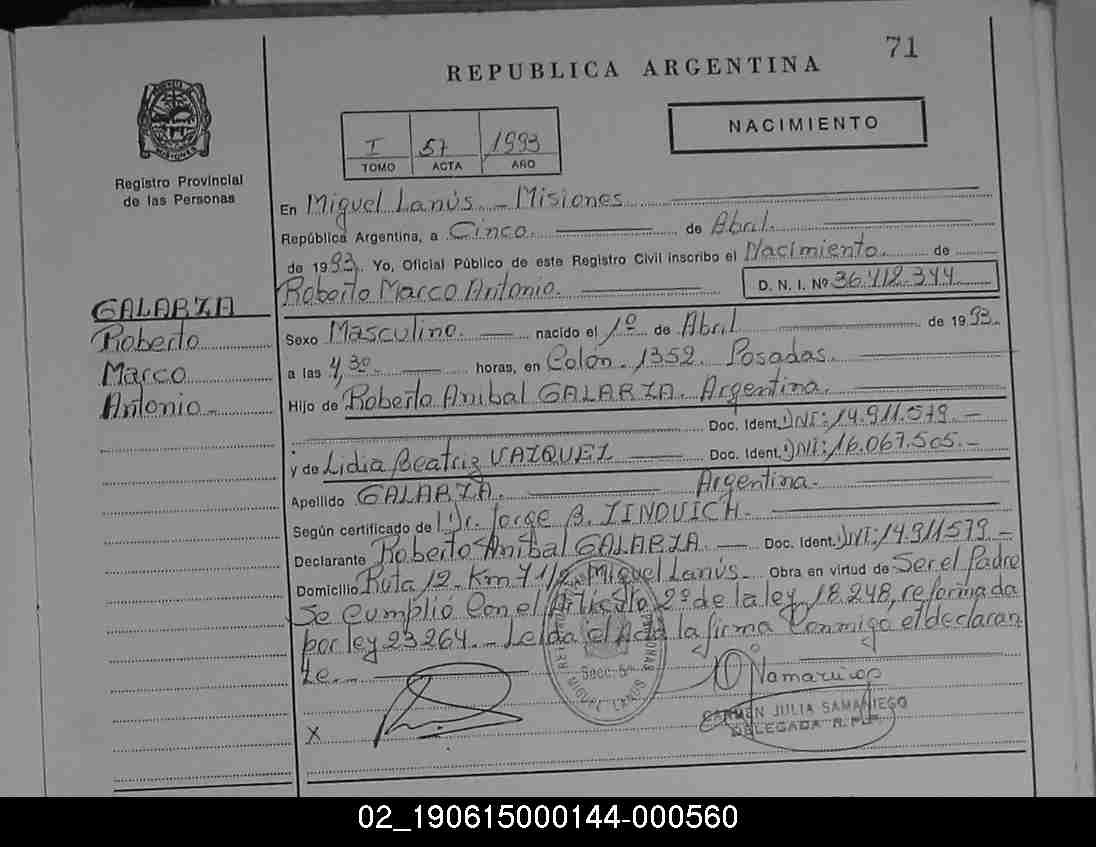 71
REPUBLICA ARGENTINA
NACIMIENTO
I 57 1993
TOMO ACTA AÑO
Registro Provincial
de las Personas
GALARZA
Roberto
Marco
Antonio.-
En Miguel Lanús.- Misiones
República Argentina, a Cinco. de Abril.
de 1993. Yo, Oficial Público de este Registro Civil inscribo el Nacimiento. de
Roberto Marco Antonio. D. N. I. Nº 36.412.344
Sexo Masculino. nacido el 1º de Abril de 1993.
a las 4,30 horas, en Colón. 1352. Posadas.
Hijo de Roberto Anibal GALARZA. Argentina.
Doc. Ident. DNI: 14.911.579.-
y de Lidia Beatriz VAZQUEZ Doc. Ident. DNI: 16.067.505.-
Apellido GALARZA. Argentina.
Según certificado de Dr. Jorge B. ZINOVICH.
Declarante Roberto Anibal GALARZA. Doc. Ident. DNI: 14.911579.-
Domicilio Ruta 12. Km 7 1/2 Miguel Lanús. Obra en virtud de Ser el Padre
Se Cumplió Con el Artículo 2º de la ley 18.248, reformada
por ley 23264.- Leída el Acta la firma Conmigo el declaran
te.-
Secc. 5ª
MIGUEL LANUS
X
CARMEN JULIA SAMANIEGO
DELEGADA R.P.P.
02_190615000144-000560